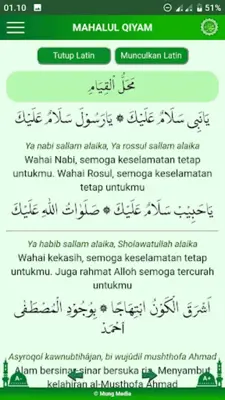 01.10
51%
MAHALUL QIYAM
Tutup Latin
Munculkan Latin
مَحَلُّ الْقِيَامِ
يَانَبِى سَلَامٌ عَلَيْكَ ۞ يَارَسُوْلَ سَلَامٌ عَلَيْكَ
Ya nabi sallam alaika, Ya rossul sallam alaika
Wahai Nabi, semoga keselamatan tetap
untukmu. Wahai Rosul, semoga keselamatan
tetap untukmu
يَاحَبِيْبَ سَلَامٌ عَلَيْكَ ۞ صَلَوَاتُ اللهِ عَلَيْكَ
Ya habib sallam alaika, Sholawatullah alaika
Wahai kekasih, semoga keselamatan tetap
untukmu. Juga rahmat Alloh semoga tercurah
untukmu
اَشْرَقَ الْكَوْنُ ابْتِهَاجًا ۞ بِوُجُوْدِ الْمُصْطَفٰى
اَحْمَدْ
Asyroqol kawnubtihâjan, bi wujûdil mushthofa Ahmad
Alam bersinar-sinar bersuka ria. Menyambut
kelahiran al-Musthofa Ahmad
A-
A+
© Mung Media